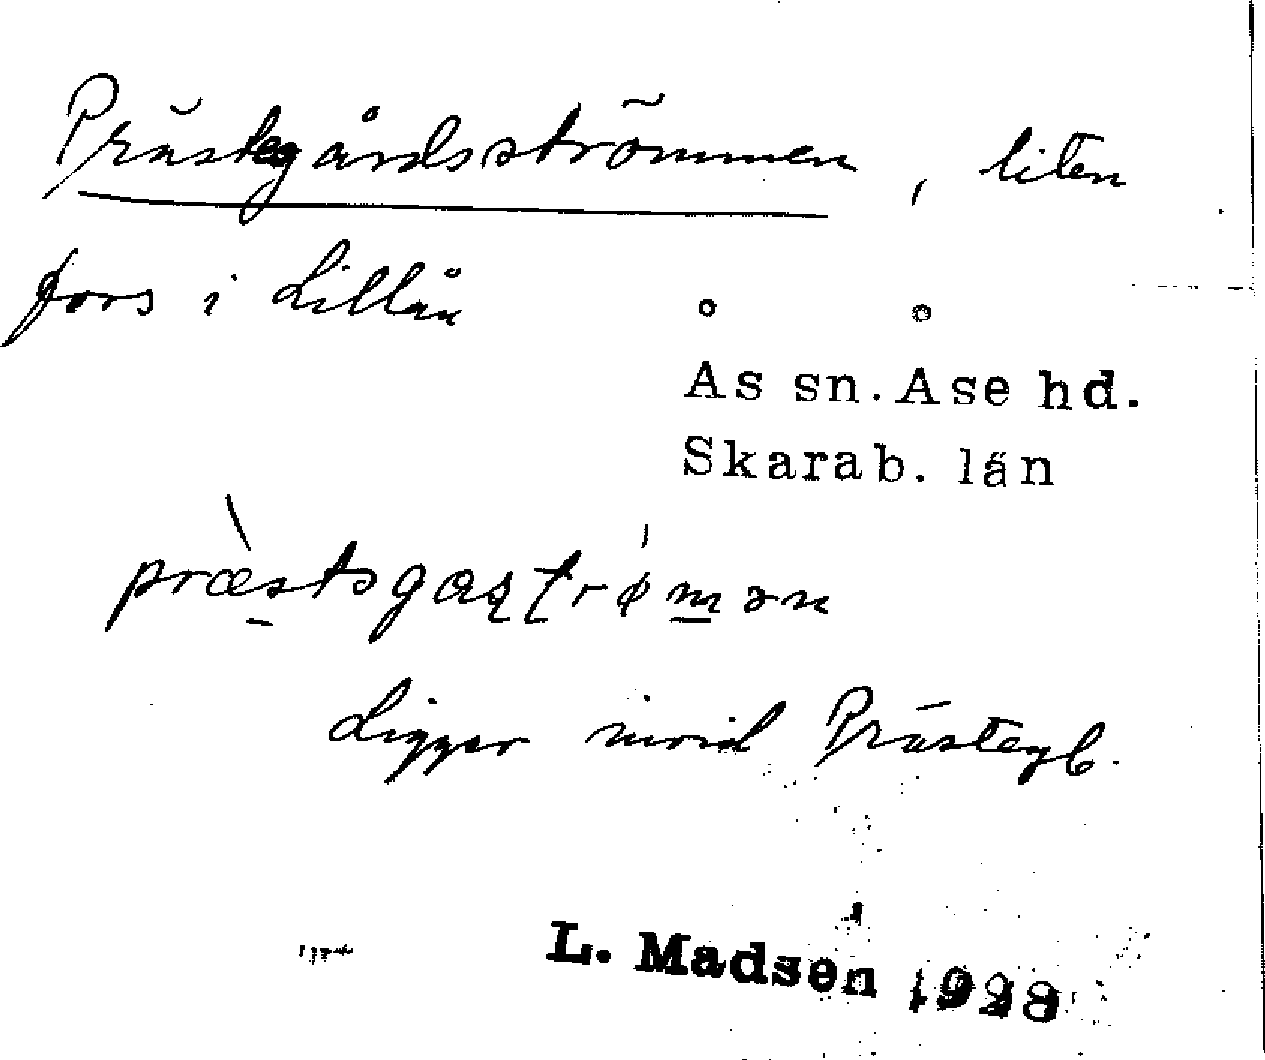 Prästegårdsströmmen, liten
fors i Lillån
Ås sn. Åse hd.
Skarab. län
præstsgastrømən
Ligger invid Prästegb.
L. Madsen